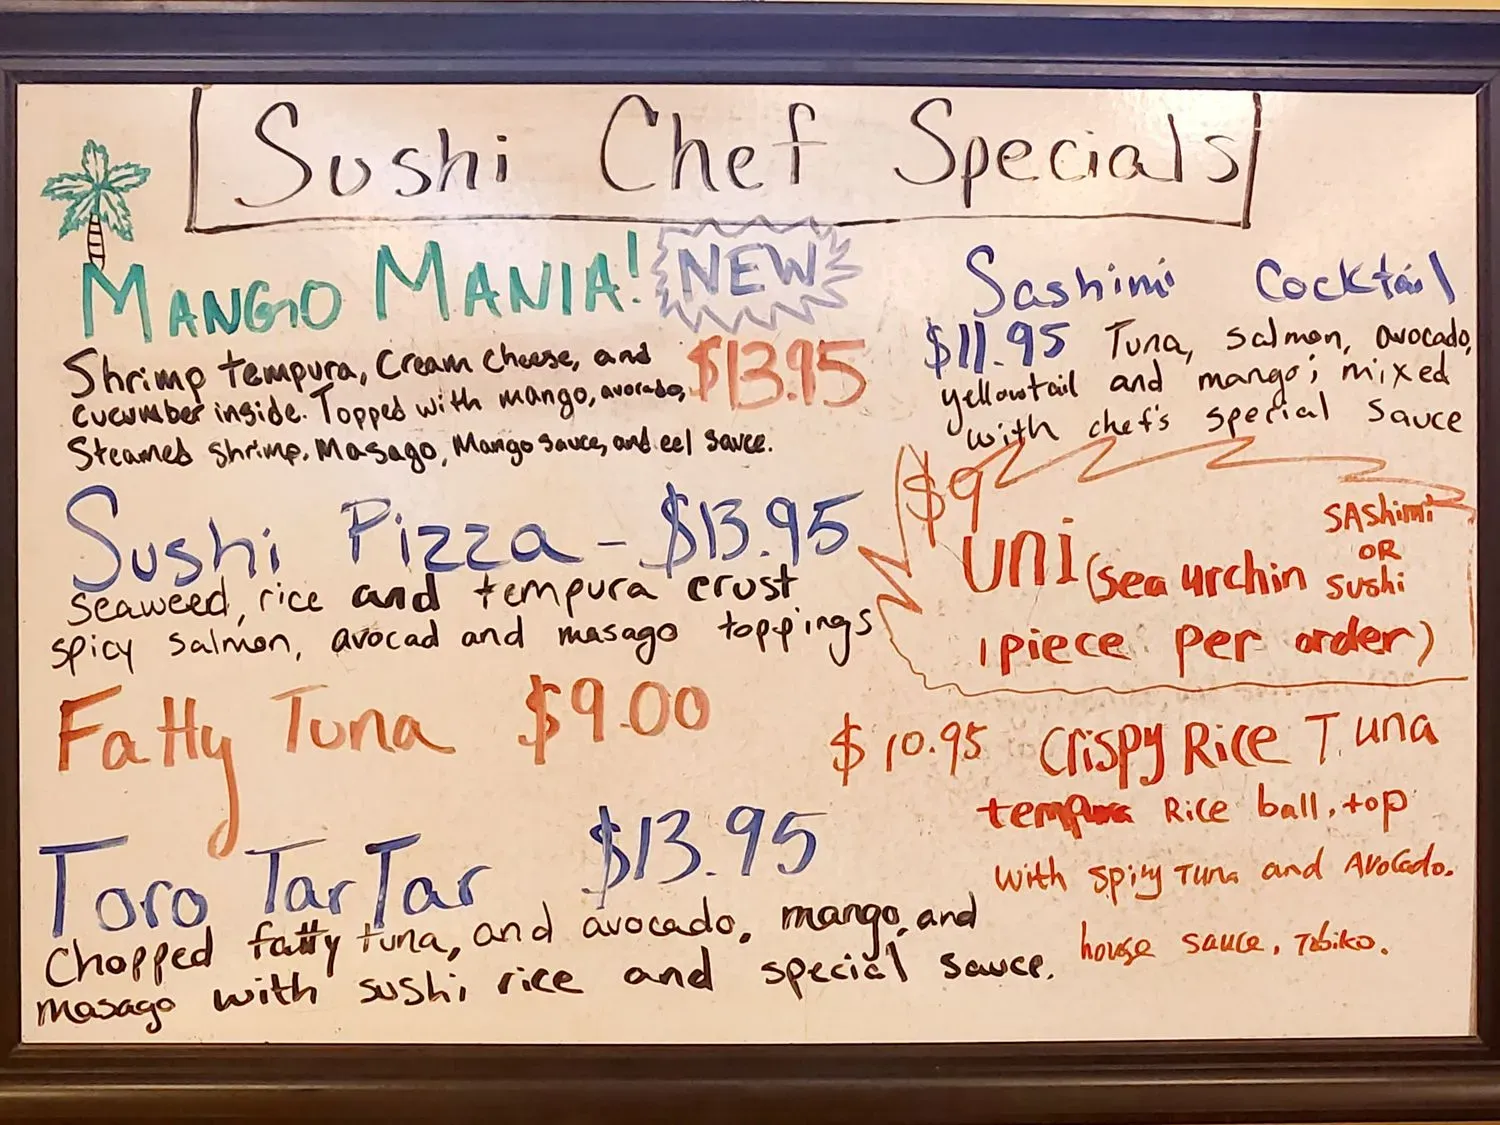 Sushi Chef Specials
MANGO MANIA! NEW
Shrimp tempura, cream cheese, and $13.95
cucumber inside. Topped with mango, avocado,
Steamed shrimp, Masago, Mango sauce, and eel sauce.
Sushi Pizza - $13.95
seaweed, rice and tempura crust
spicy salmon, avocad and masago toppings
Fatty Tuna $9.00
Toro TarTar $13.95
Chopped fatty tuna, and avocado, mango, and
masago with sushi rice and special sauce.
Sashimi Cocktail
$11.95 Tuna, salmon, avocado,
yellowtail and mango; mixed
with chef's special sauce
$9
uni (sea urchin SAshimi OR sushi
1 piece per order)
$10.95 Crispy Rice Tuna
tempura Rice ball, top
with spicy Tuna and Avocado.
house sauce, Tobiko.